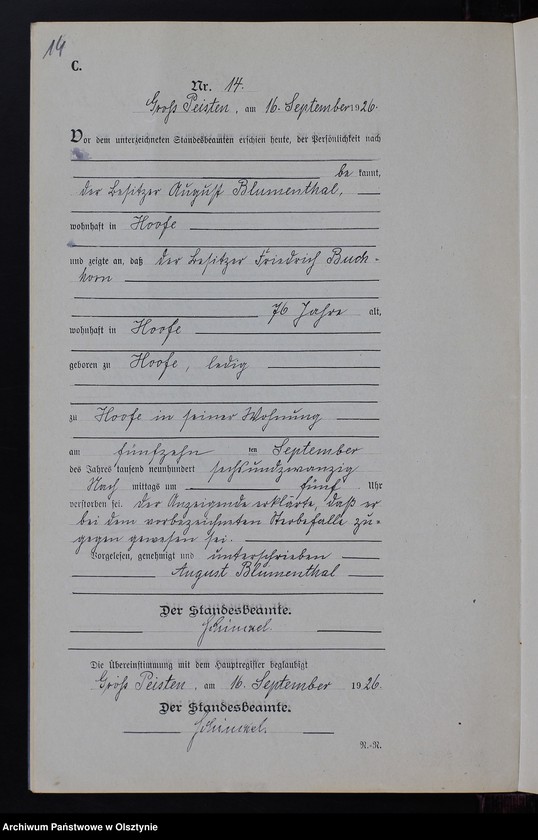 14
C.
Nr. 14.
Groß Peisten, am 16. September 1926.
Vor dem unterzeichneten Standesbeamten erschien heute, der Persönlichkeit nach
be kannt,
der Besitzer August Blumenthal,
wohnhaft in Hoofe
und zeigte an, daß der Besitzer Friedrich Buch-
horn
76 Jahre alt,
wohnhaft in Hoofe
geboren zu Hoofe, ledig
zu Hoofe in seiner Wohnung
am fünfzehn ten September
des Jahres tausend neunhundert sechsundzwanzig
Nach mittags um fünf Uhr
verstorben sei. Der Anzeigende erklärte, daß er
bei dem vorbezeichneten Sterbefalle zu-
gegen gewesen sei.
Vorgelesen, genehmigt und unterschrieben
August Blumenthal
Der Standesbeamte.
Die Übereinstimmung mit dem Hauptregister beglaubigt
Groß Peisten, am 16. September 1926.
Der Standesbeamte.
R.-R.
Archiwum Państwowe w Olsztynie